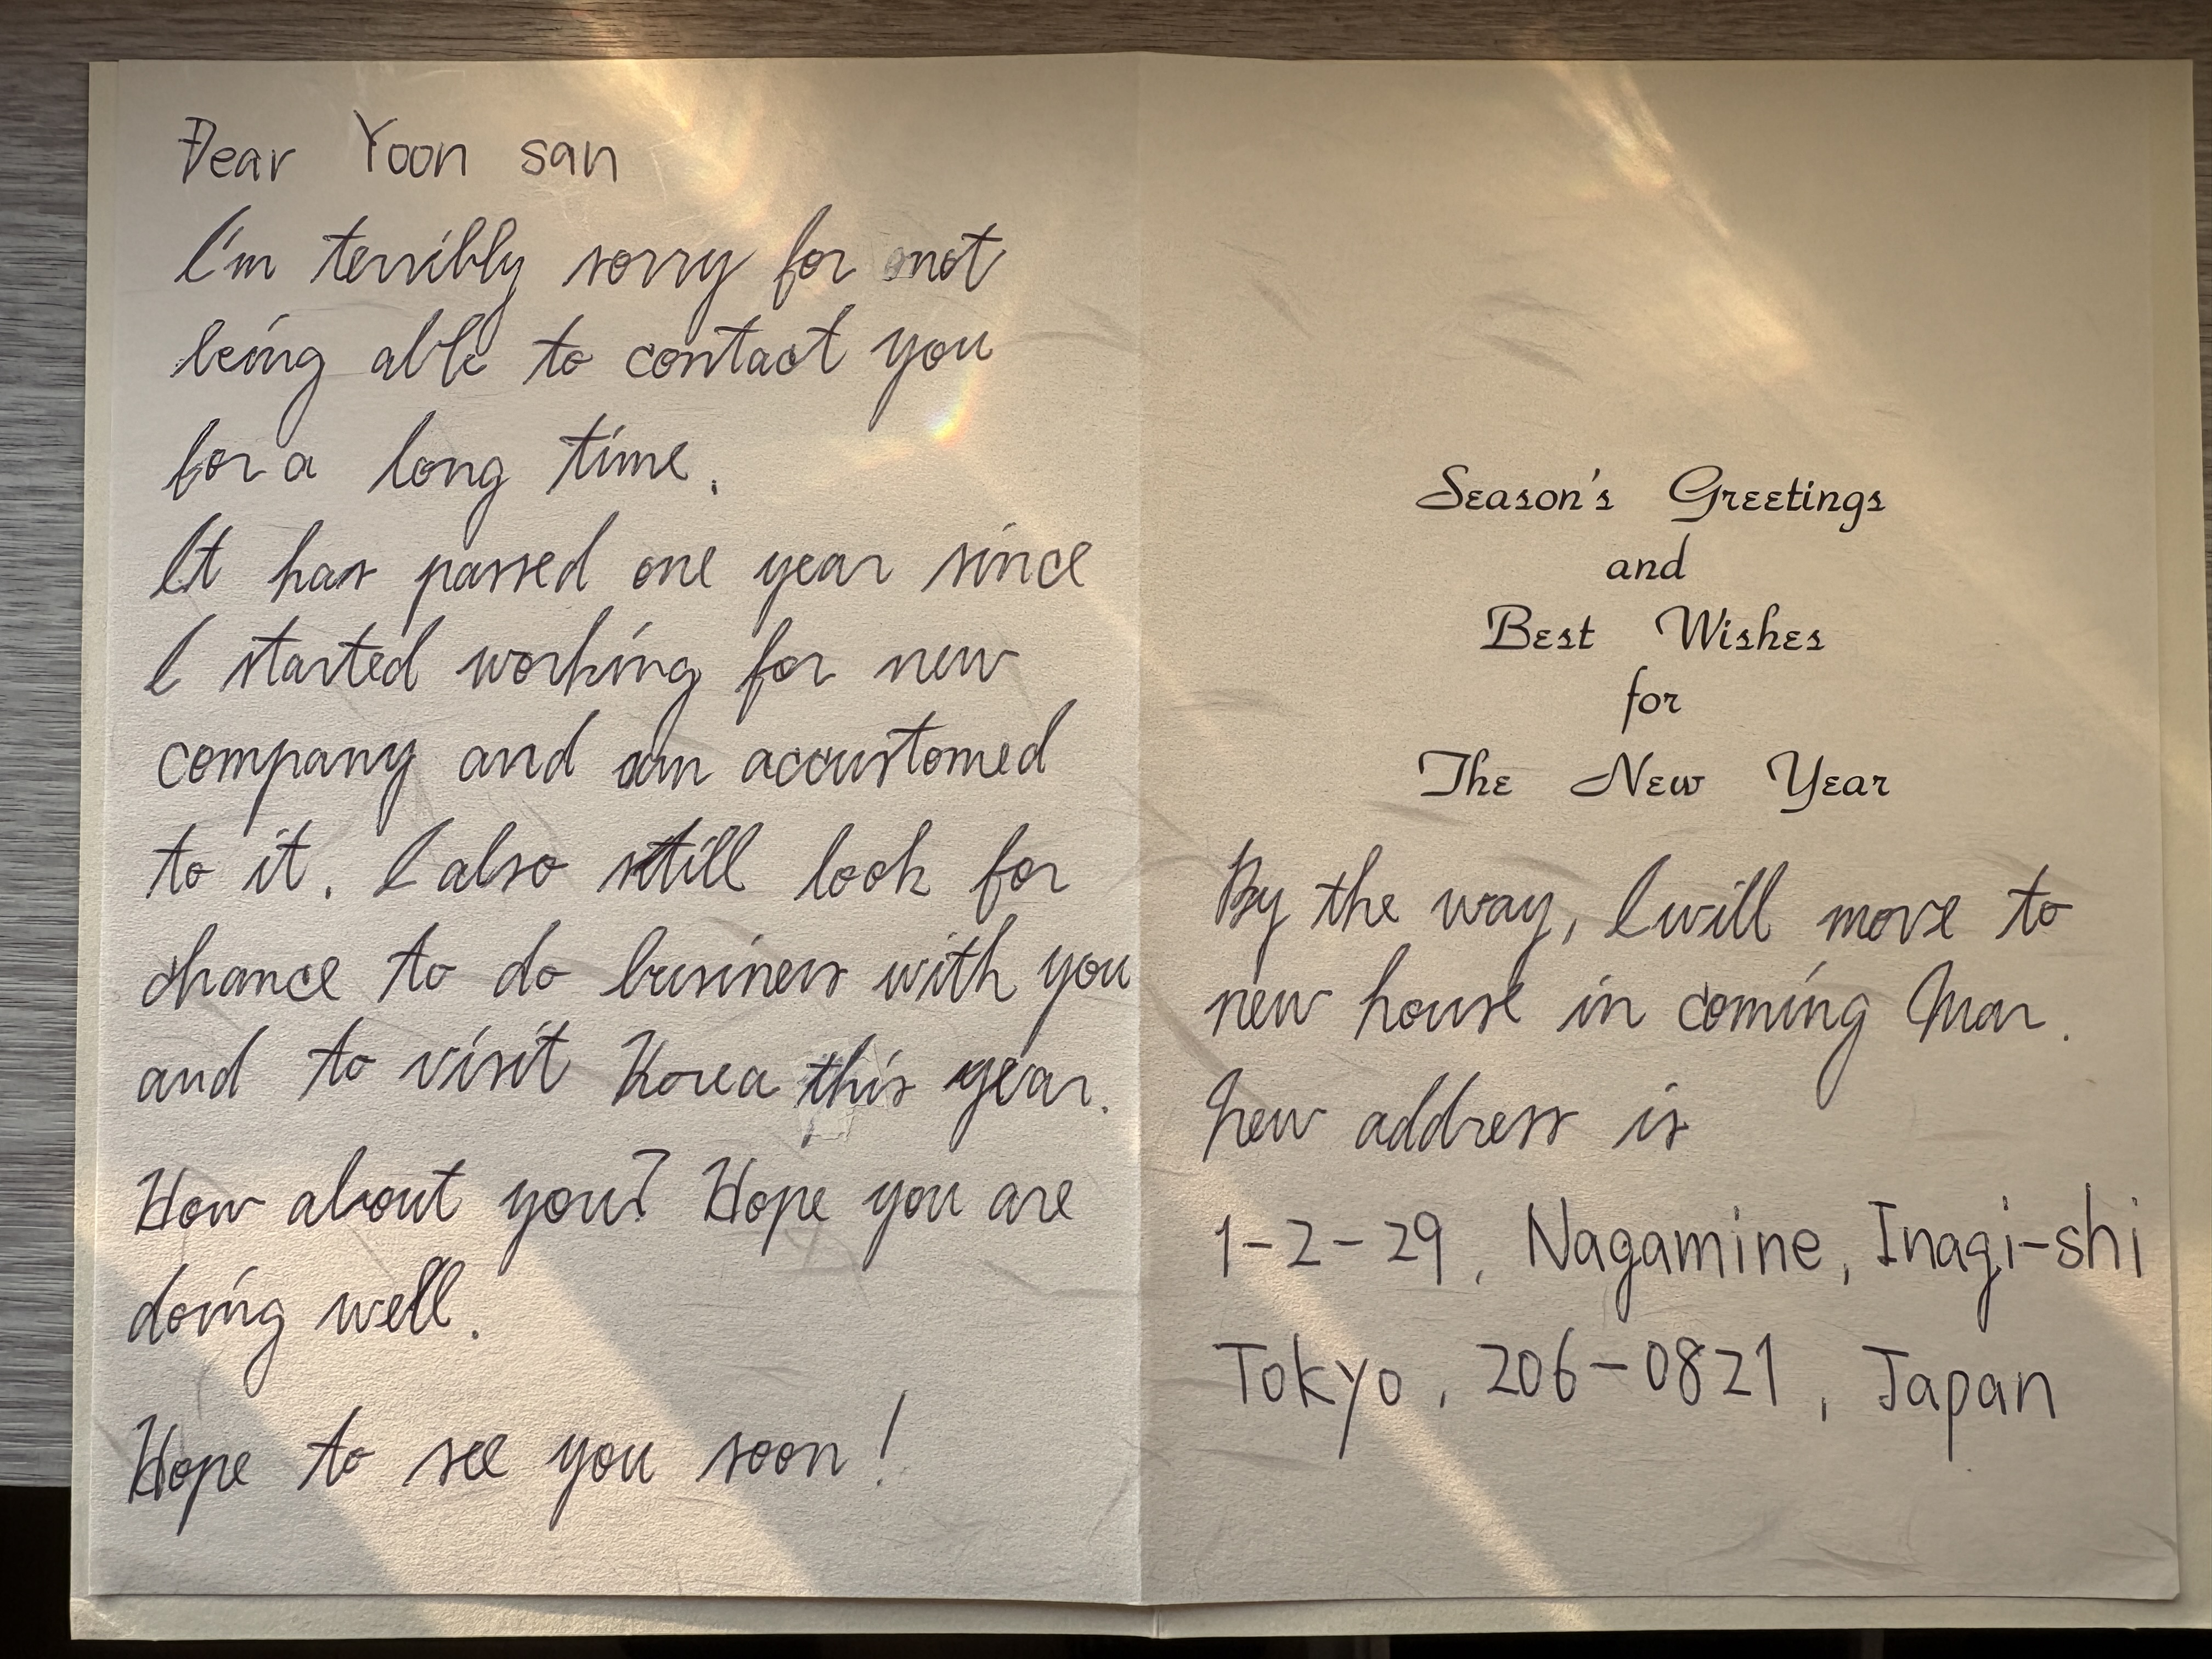 Dear Yoon san
I'm terribly sorry for not
being able to contact you
for a long time.
It has passed one year since
I started working for new
company and am accustomed
to it. I also still look for
chance to do business with you
and to visit Korea this year.
How about you? Hope you are
doing well.
Hope to see you soon!
Season's Greetings
and
Best Wishes
for
The New Year
By the way, I will move to
new house in coming Mar.
New address is
1-2-29, Nagamine, Inagi-shi
Tokyo, 206-0821, Japan